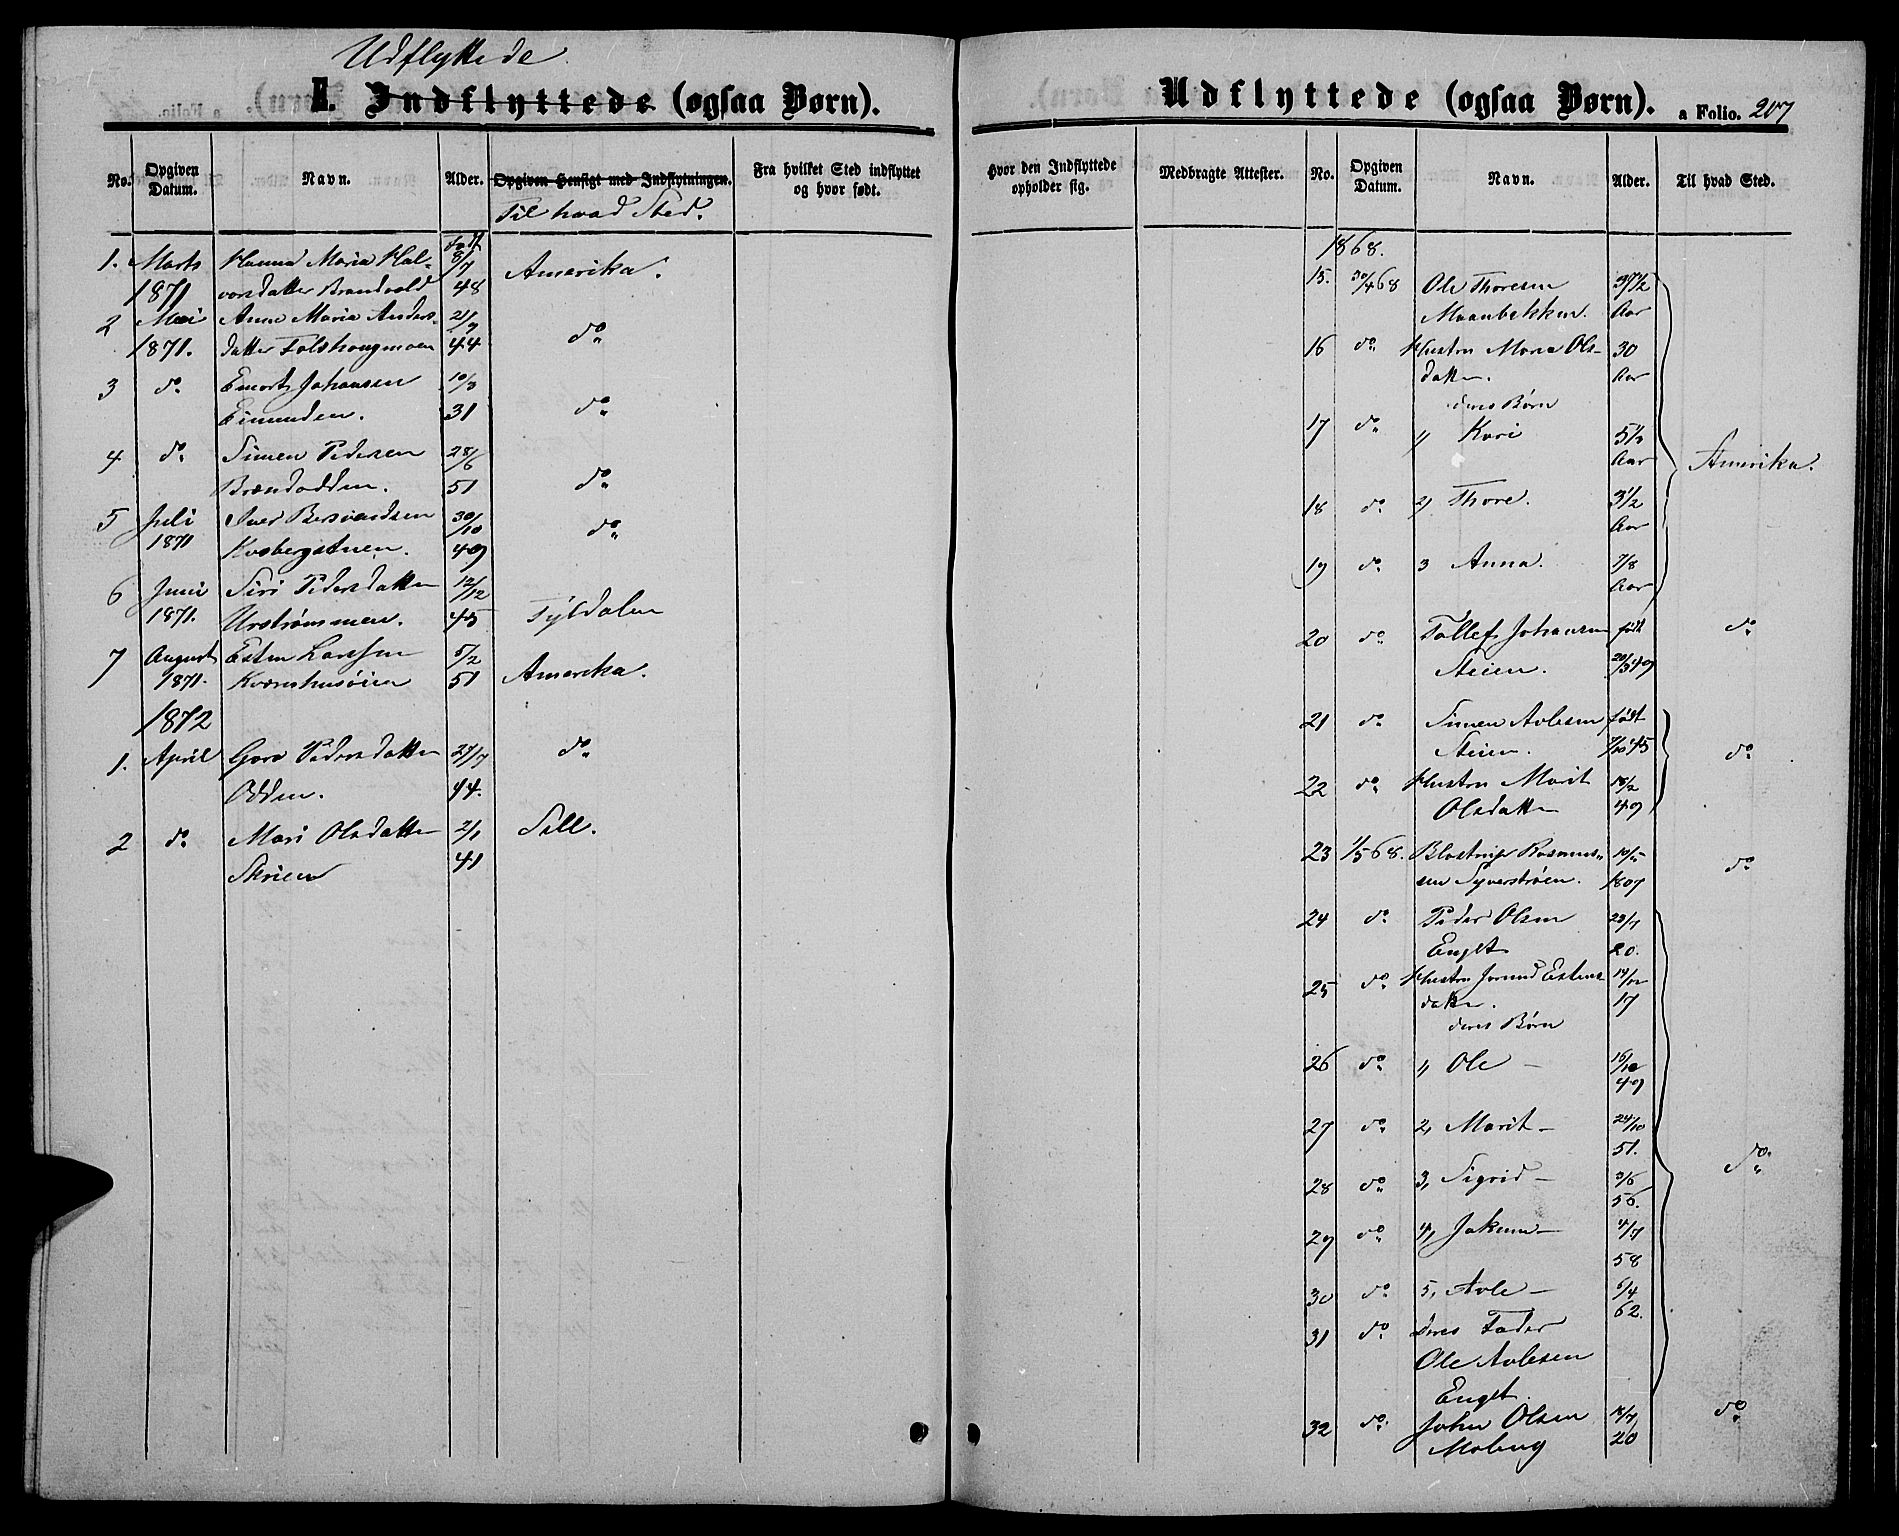 Udflyttede
II. Indflyttede (ogsaa Børn).
No. Opgiven Datum. Navn. Alder. Opgiven Hensigt med Indflytningen. Fra hvilket Sted indflyttet og hvor født.
Til hvad Sted.
Født
1. Marts Hanna Maria Hal- 8/7 Amerika.
1871 vorsdatter Brandvold 48
2 Mai Anne Maria Anders- 2/9 do
1871. datter Tolshaugmoen 44
3 do Emort Johansen 10/3 do
Eimunden. 31
4 do Simen Pedersen 28/6 do
Brændodden. 51
5 Juli Iver Bersvendsen 30/10 do
1871 Kvebergstuen. 49
6 Juni Siri Pedersdatter 12/12
1871. Urstrømmen. 45 Tyldalen
7 August Esten Larssen 5/2 Amerika.
1871. Kværnhusøien 51
1872
1. April Goro Pedersdatter 27/7 do
Odden. 44.
2 do Mari Olsdatter 2/1 Sell.
Skrien 41
Udflyttede (ogsaa Børn). a Folio. 207
Hvor den Indflyttede opholder sig. Medbragte Attester. No. Opgiven Datum. Navn. Alder. Til hvad Sted.
1868.
15. 30/4 68 Ole Thoresen 37 1/2
Moanbekken. Aar
16 do Hustru Maria Ols- 30
datter. Aar
deres Børn
17 do 1, Kari 5 1/2
Aar Amerika.
18 do 2, Thore. 3 1/2
Aar
19 do 3 Anna. 7/8
Aar
20 do Tollef Johansen født do
Steien. 20/3 49
21 do Simen Avlesen født
Steien. 7/10 45 do
22 do Hustru Marit 18/2
Olsdatter 49
23 1/5 68. Blostrup Rasmus- 10/5 do
sen Syverstrøen. 1807
24 do Peder Olsen 23/7
Enget 20.
25 do Hustru Jorund Estens- 14/12
datter. 17
deres Børn
26 do 1, Ole - 16/10
49
27 do 2, Marit - 24/10
51. do
28 do 3, Sigrid - 3/6
56.
29 do 4, Jakum - 4/7
58
30 do 5, Avle - 6/4
62.
31 do deres Fader
Ole Avlesen
Enget.
32 do John Olsen 18/7 do
Moberg 20